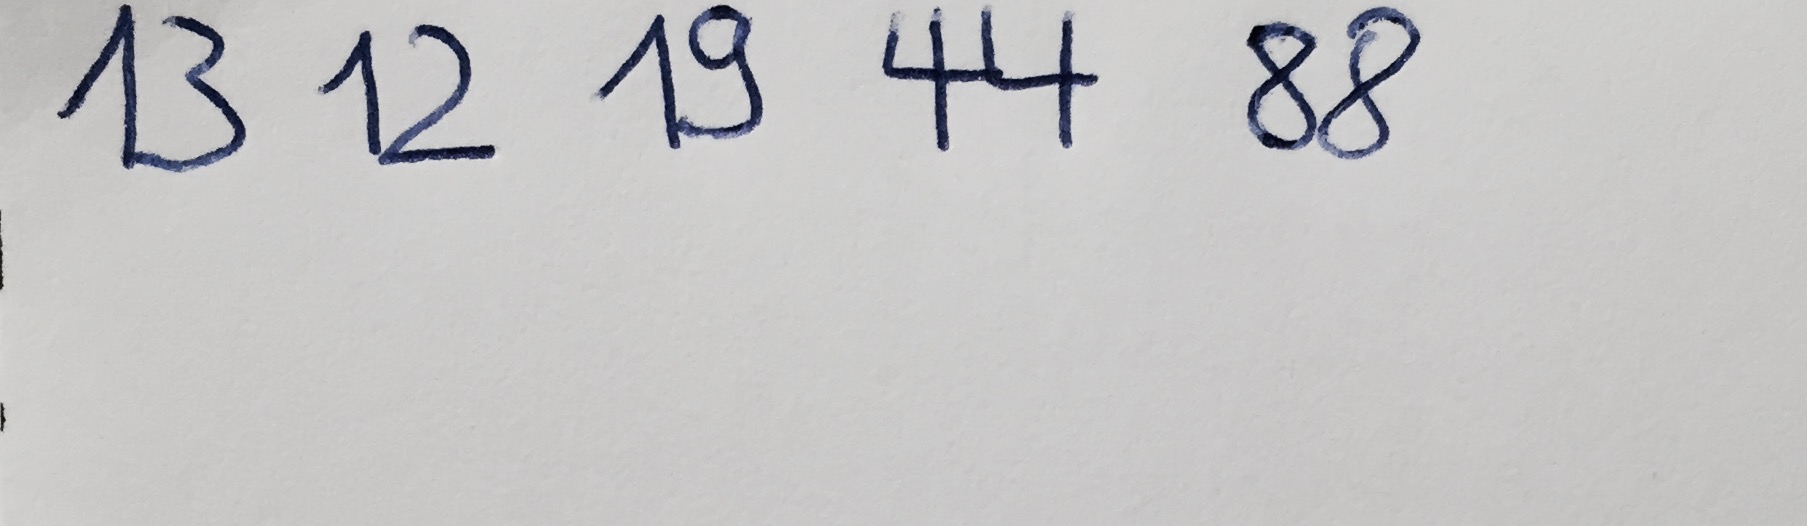 13 12 19 44 88